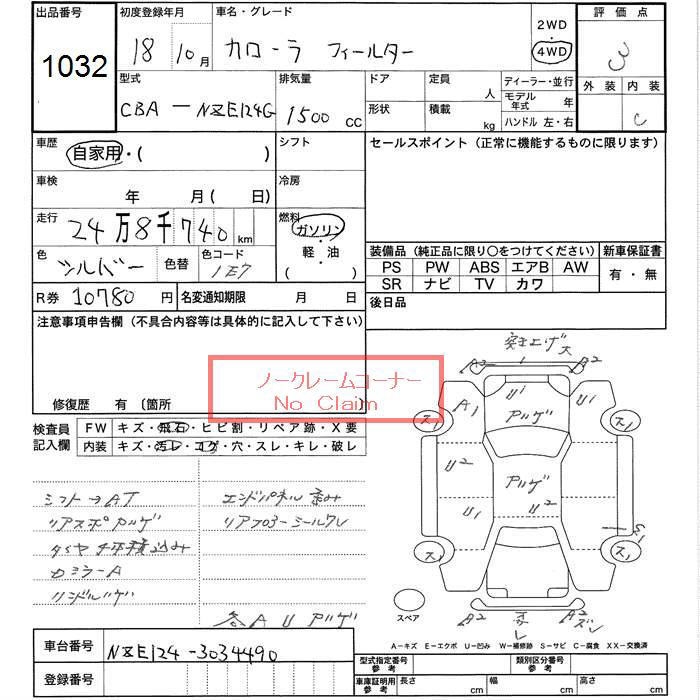 出品番号
1032
初度登録年月
18 10月
車名・グレード
カローラ フィールダー
2WD
4WD
評価点
3
外装 内装
C
型式
CBA - NZE124G
排気量
1500 CC
ドア
定員
人
形状
積載
kg
ディーラー・並行
モデル年式 年
ハンドル 左・右
車歴
自家用・( )
シフト
セールスポイント（正常に機能するものに限ります）
車検
年 月( 日)
冷房
走行
24万8千740 km
燃料
ガソリン
・
軽・油
( )
色
シルバー
色替
色コード
1E7
装備品（純正品に限り○をつけてください）
新車保証書
PS PW ABS エアB AW
SR ナビ TV カワ
有・無
R券 10780 円
名変通知期限 月 日
後日品
注意事項申告欄（不具合内容等は具体的に記入して下さい）
ノークレームコーナー
No Claim
修復歴 有〔箇所 〕
検査員記入欄
FW キズ・飛石・ヒビ割・リペア跡・X要
内装 キズ・汚レ・コゲ・穴・スレ・キレ・破レ
シフト→AT
リアスポ アルゲ
タイヤ
カミラーA
エンドパネル 歪み
各AU アルゲ
突き上ゲ 大
A2 A2
A1 U1 U1
アルゲ
ス1 ス1
U2
アルゲ
U1 U2
ス1 ス1
スペア
A2 A2
A-キズ E-エクボ U-凹み W-補修跡 S-サビ C-腐食 XX-交換済
車台番号 NZE124-3034490
登録番号
型式指定番号 参考
類別区分番号 参考
車庫証明用 参考
長さ cm 幅 cm 高さ cm